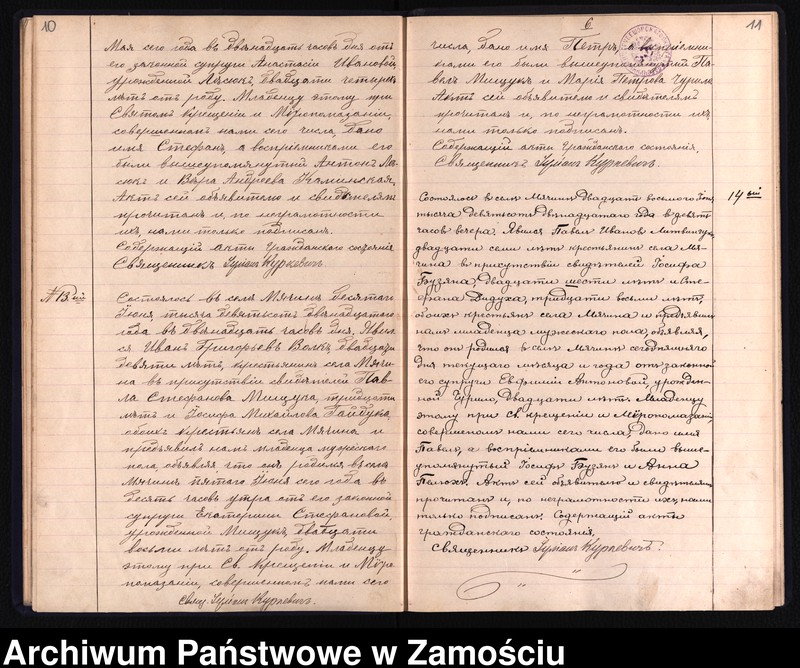 10
Мая сего года въ двѣнадцать часовъ дня отъ
его законной супруги Анастасіи Ивановой
урожденной двадцати четырехъ
лѣтъ отъ роду. Младенцу этому при
Святомъ Крещеніи и Мѵропомазаніи,
совершенномъ нами сего числа, дано
имя Стефанъ, а воспріемниками его
были вышеупомянутый Антонъ
и Вѣра Андреева Каминская.
Актъ сей объявителю и свидѣтелямъ
прочитанъ и, по неграмотности
ихъ, нами только подписанъ.
Содержащій акты гражданскаго состоянія
Священникъ Куркевичъ.
№ 13ый
Состоялось въ селѣ Мячинѣ десятаго
Іюня, тысяча девятьсотъ двѣнадцатаго
года въ двѣнадцать часовъ дня. Явил-
ся Иванъ Григорьевъ Волкъ, двадцати
девяти лѣтъ, крестьянинъ села Мячи-
на въ присутствіи свидѣтелей Пав-
ла Стефанова Мищука, тридцати
лѣтъ и Іосифа Михайлова Гайдука,
обоихъ крестьянъ села Мячина и
предъявилъ намъ младенца мужескаго
пола, объявляя, что онъ родился въ селѣ
Мячинѣ пятаго Іюня сего года въ
десять часовъ утра отъ его законной
супруги Екатерины Стефановой,
урожденной Мищукъ, двадцати
восьми лѣтъ отъ роду. Младенцу
этому при Св. Крещеніи и Мѵро-
помазаніи, совершенномъ нами сего
Свящ. Куркевичъ.
6
11
числа, дано имя Петръ, а воспріемни-
ками его были вышеупомянутый Па-
велъ Мищукъ и Марія Петрова
Актъ сей объявителю и свидѣтелямъ
прочитанъ и, по неграмотности ихъ,
нами только подписанъ.
Содержащій акты гражданскаго состоянія,
Священникъ Куркевичъ.
14ый
Состоялось въ селѣ Мячинѣ двадцать восьмого Іюня
тысяча девятьсотъ двѣнадцатаго года въ девять
часовъ вечера. Явился Павелъ Ивановъ Литвинчукъ,
двадцати семи лѣтъ крестьянинъ села Мя-
чина въ присутствіи свидѣтелей Іосифа
Бузяна, двадцати шести лѣтъ и Сте-
фана Дидуха, тридцати восьми лѣтъ,
обоихъ крестьянъ села Мячина и предъявилъ
намъ младенца мужескаго пола, объявляя,
что онъ родился въ селѣ Мячинѣ сегодняшняго
дня текущаго мѣсяца и года отъ законной
его супруги Евфиміи Антоновой, урожден-
ной Чурило, двадцати лѣтъ. Младенцу
этому при Св. крещеніи и Мѵропомазаніи,
совершенномъ нами сего числа, дано имя
Павелъ, а воспріемниками его были выше-
упомянутый Іосифъ Бузянъ и Анна
Актъ сей объявителю и свидѣтелямъ
прочитанъ и, по неграмотности ихъ, нами
только подписанъ. Содержащій акты
гражданскаго состоянія,
Священникъ Куркевичъ.
Archiwum Państwowe w Zamościu